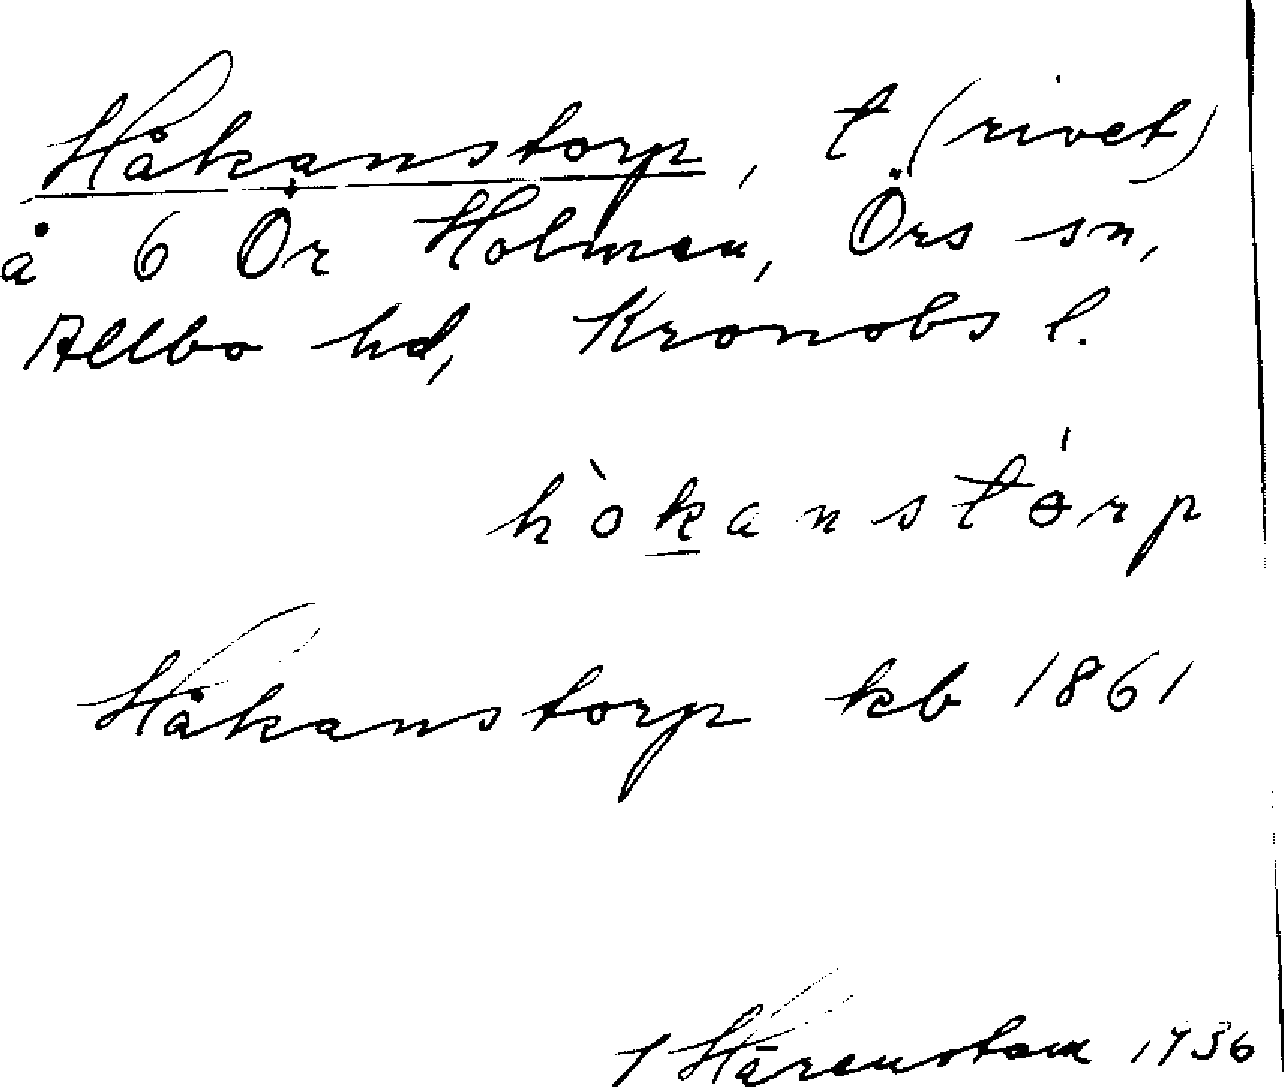 Håkanstorp, t (rivet)
å 6 Ör Holmen, Örs sn,
Allbo hd, Kronobs l.
hòkanstórp
Håkanstorp kb 1861
Härenstam 1936